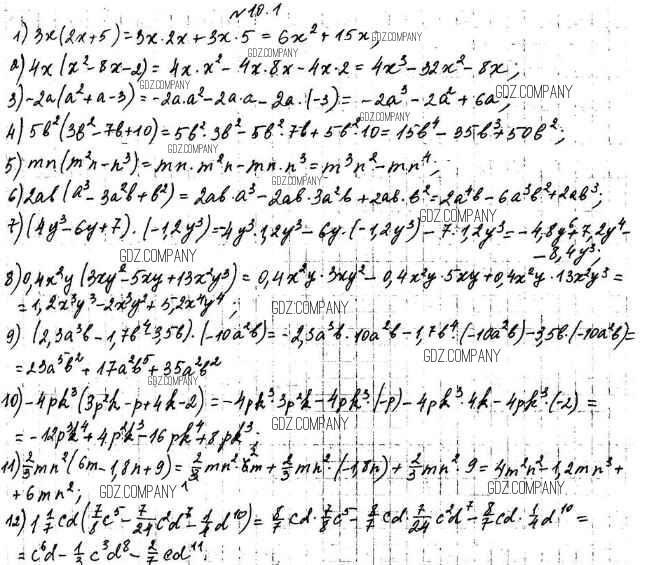 №10.1
1) 3x(2x+5)=3x·2x+3x·5=6x²+15x;
GDZ.COMPANY
GDZ.COMPANY
2) 4x(x²-8x-2)=4x·x²-4x·8x-4x·2=4x³-32x²-8x;
GDZ.COMPANY
3) -2a(a²+a-3)=-2a·a²-2a·a-2a·(-3)=-2a³-2a²+6a;
GDZ.COMPANY
GDZ.COMPANY
4) 5b²(3b²-7b+10)=5b²·3b²-5b²·7b+5b²·10=15b⁴-35b³+50b²;
GDZ.COMPANY
5) mn(m²n-n³)=mn·m²n-mn·n³=m³n²-mn⁴;
GDZ.COMPANY
6) 2ab(a³-3a²b+b²)=2ab·a³-2ab·3a²b+2ab·b²=2a⁴b-6a³b²+2ab³;
GDZ.COMPANY
7) (4y³-6y+7)·(-1,2y³)=-4y³·1,2y³-6y·(-1,2y³)-7·1,2y³=-4,8y⁶+7,2y⁴-
-8,4y³;
GDZ.COMPANY
8) 0,4x²y(3xy²-5xy+13x²y³)=0,4x²y·3xy²-0,4x²y·5xy+0,4x²y·13x²y³=
=1,2x³y³-2x³y²+5,2x⁴y⁴;
GDZ.COMPANY
9) (2,3a³b-1,7b⁴-3,5b)·(-10a²b)=-2,3a³b·10a²b-1,7b⁴·(-10a²b)-3,5b·(-10a²b)=
GDZ.COMPANY
=23a⁵b²+17a²b⁵+35a²b²
GDZ.COMPANY
10) -4pk³(3p²k-p+4k-2)=-4pk³·3p²k-4pk³·(-p)-4pk³·4k-4pk³·(-2)=
GDZ.COMPANY
=-12p³k⁴+4p²k³-16pk⁴+8pk³;
GDZ.COMPANY
11) 2/3mn²(6m-1,8n+9)=2/3mn²·6m+2/3mn²·(-1,8n)+2/3mn²·9=4m²n²-1,2mn³+
+6mn²;
GDZ.COMPANY
GDZ.COMPANY
12) 1 1/7cd(7/8c⁵-7/24c²d⁷-1/4d¹⁰)=8/7cd·7/8c⁵-8/7cd·7/24c²d⁷-8/7cd·1/4d¹⁰=
=c⁶d-1/3c³d⁸-2/7cd¹¹